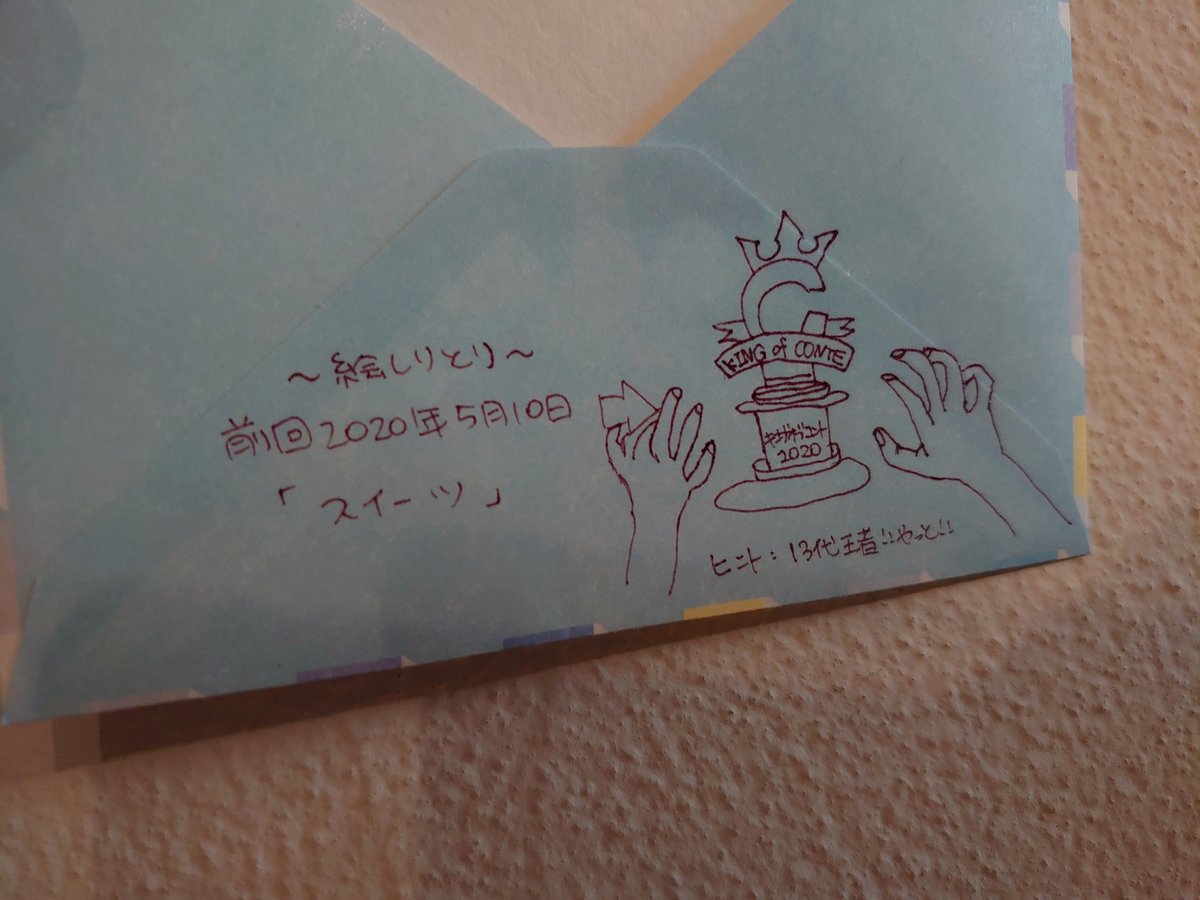 ～絵しりとり～
前回2020年5月10日
「スイーツ」
KING of CONTE
キングオブコント
2020
ヒント：13代王者!!やっと!!